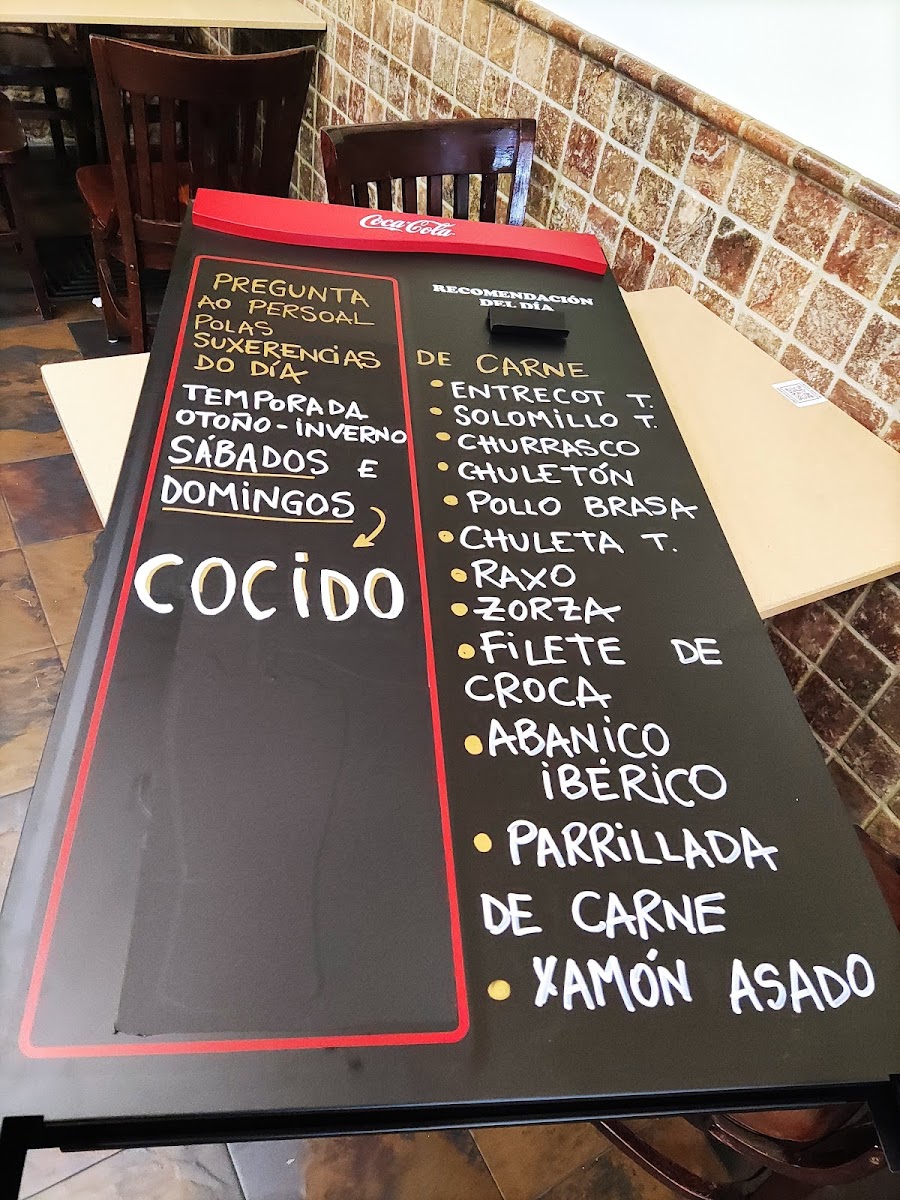 Coca-Cola
PREGUNTA
AO PERSOAL
POLAS
SUXERENCIAS
DO DÍA
TEMPORADA
OTOÑO - INVERNO
SÁBADOS E
DOMINGOS
COCIDO
RECOMENDACIÓN
DEL DÍA
DE CARNE
• ENTRECOT T.
• SOLOMILLO T.
• CHURRASCO
• CHULETÓN
• POLLO BRASA
• CHULETA T.
• RAXO
• ZORZA
• FILETE DE
CROCA
• ABANICO
IBÉRICO
• PARRILLADA
DE CARNE
• XAMÓN ASADO